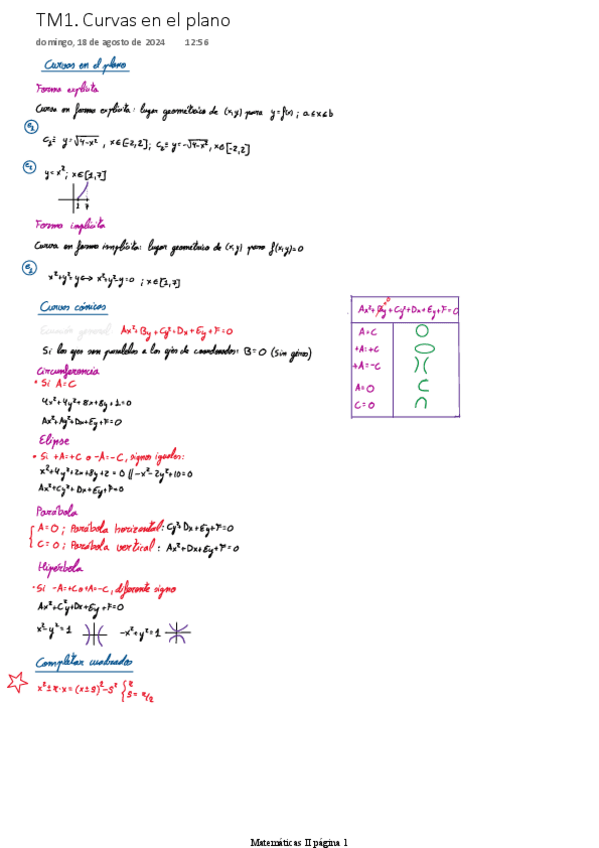 TM1. Curvas en el plano
domingo, 18 de agosto de 2024 12:56
Curvas en el plano
Forma explícita
Curva en forma explícita: lugar geométrico de (x,y) para y=f(x) ; a≤x≤b
e1
C1≡ y=√4-x² , x∈[-2,2]; C2≡ y=-√4-x², x∈[-2,2]
e2
y=x²; x∈[1,7]
1 7
Forma implícita
Curva en forma implícita: lugar geométrico de (x,y) para f(x,y)=0
e3
x²+y²=y↔x²+y²-y=0 ; x∈[1,7]
Curvas cónicas
Ecuación general Ax²+By+Cy²+Dx+Ey+F=0
Si los ejes son paralelos a los ejes de coordenadas: B=0 (Sin giros)
Circunferencia
• Si A=C
4x²+4y²+8x+8y+1=0
Ax²+Ay²+Dx+Ey+F=0
Elipse
• Si +A=+C o -A=-C, signos iguales:
x²+4y²+2x+8y+2=0 // -x²-2y²+10=0
Ax²+Cy²+Dx+Ey+F=0
Parábola
A=0 ; Parábola horizontal: Cy²+Dx+Ey+F=0
C=0 ; Parábola vertical: Ax²+Dx+Ey+F=0
Hipérbola
• Si -A=+C o +A=-C, diferente signo
Ax²+C²y+Dx+Ey+F=0
x²-y²=1 -x²+y²=1
Completar cuadrados
x²±r·x=(x±s)²-s² { r
s=r/2
Ax²+By+Cy²+Dx+Ey+F=0
0
A=C
+A=+C
+A=-C
A=0
C=0
Matemáticas II página 1